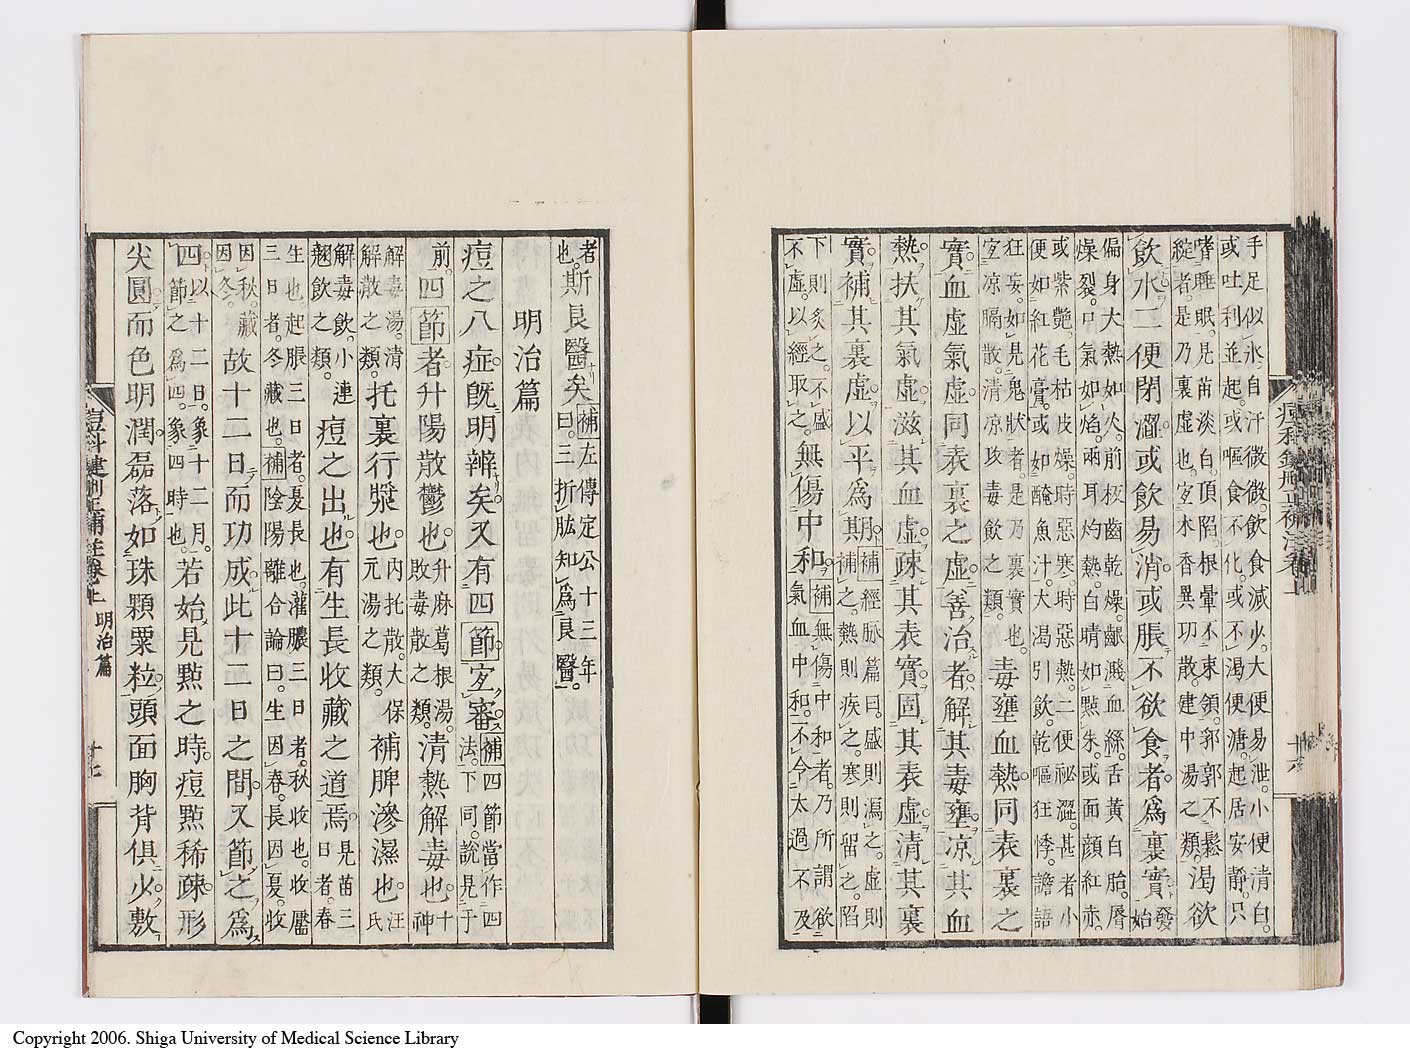 手足似氷自汗微微飲食減少大便易泄小便清白
或吐利並起或嘔食不化或不渇便溏起居安靜只
嗜睡眠見苗淡白頂陷根暈不束領郭郭不鬆
綻者是乃裏虛也宜木香異功散建中湯之類渇欲
飲水二便閉澀或飲易消或脹不欲食者為裏實發始
徧身大熱如火前板齒乾燥齦濺血絲舌黃白胎唇
燥裂口氣如焰兩耳灼熱白睛如點朱或面顔紅赤
或紫艶毛枯皮燥時惡寒時惡熱二便祕澀甚者小
便如紅花膏或如醃魚汁大渇引飲乾嘔狂悸譫語
狂妄如見鬼狀者是乃裏實也
宜凉膈散清凉攻毒飲之類毒壅血熱同表裏之
實血虛氣虛同表裏之虛善治者解其毒壅凉其血
熱扶其氣虛滋其血虛疎其表實固其表虛清其裏
實補其裏虛以平為期補經脉篇曰盛則瀉之虛則
補之熱則疾之寒則留之陷
下則灸之不盛
不虛以經取之無傷中和補無傷中和者乃所謂欲
氣血中和二不令太過不及
者
也斯良醫矣補左傳定公十三年
曰三折肱知為良醫
明治篇
痘之八症旣明辨矣又有四節宜審補四節當作四
法下同說見于
前四節者升陽散鬱也升麻葛根湯
敗毒散之類清熱解毒也十神
解毒湯清
解散之類托裏行漿也內托散大保
元湯之類補脾滲濕也汪氏
解毒飲小連
翹飲之類痘之出也有生長收藏之道焉見苗三
日者春
生也起脹三日者夏長也灌膿三日者秋收也收靨
三日者冬藏也補陰陽離合論曰生因春長因夏收
因秋藏
因冬故十二日而功成此十二日之間又節之為
四以十二日象十二月
節之為四象四時也若始見點之時痘點稀疎形
尖圓而色明潤磊落如珠顆粟粒頭面胸背俱少敷
痘科鍵刪正補註卷上
明治篇
十七
十六
Copyright 2006. Shiga University of Medical Science Library